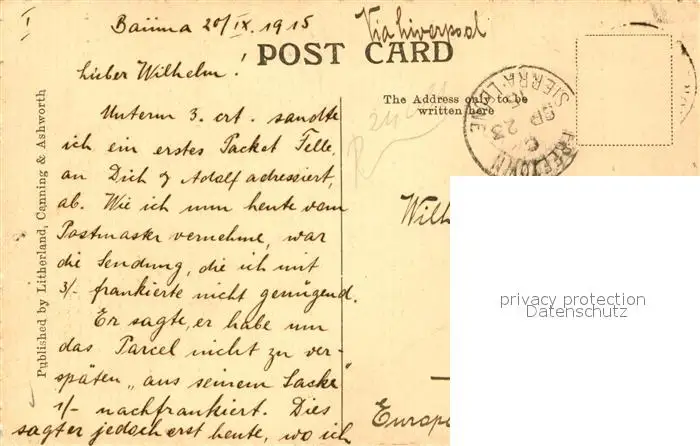 I
Baiima 20/IX. 1915
Via Liverpool
POST CARD
Lieber Wilhelm!
The Address only to be
written here
FREETOWN
SIERRA LEONE
SP 23
Unterm 3. crt. sandte
ich ein erstes Packet Felle,
an Dich & Adolf adressiert,
ab. Wie ich nun heute vom
Postmaster vernehme, war
die Sendung, die ich mit
3/- frankierte nicht genügend.
Er sagte, er habe um
das Parcel nicht zu ver-
späten „aus seinem Sacke"
1/- nachfrankiert. Dies
sagt er jedoch erst heute, wo ich
Published by Litherland, Canning & Ashworth
Wilh
Europa
privacy protection
Datenschutz